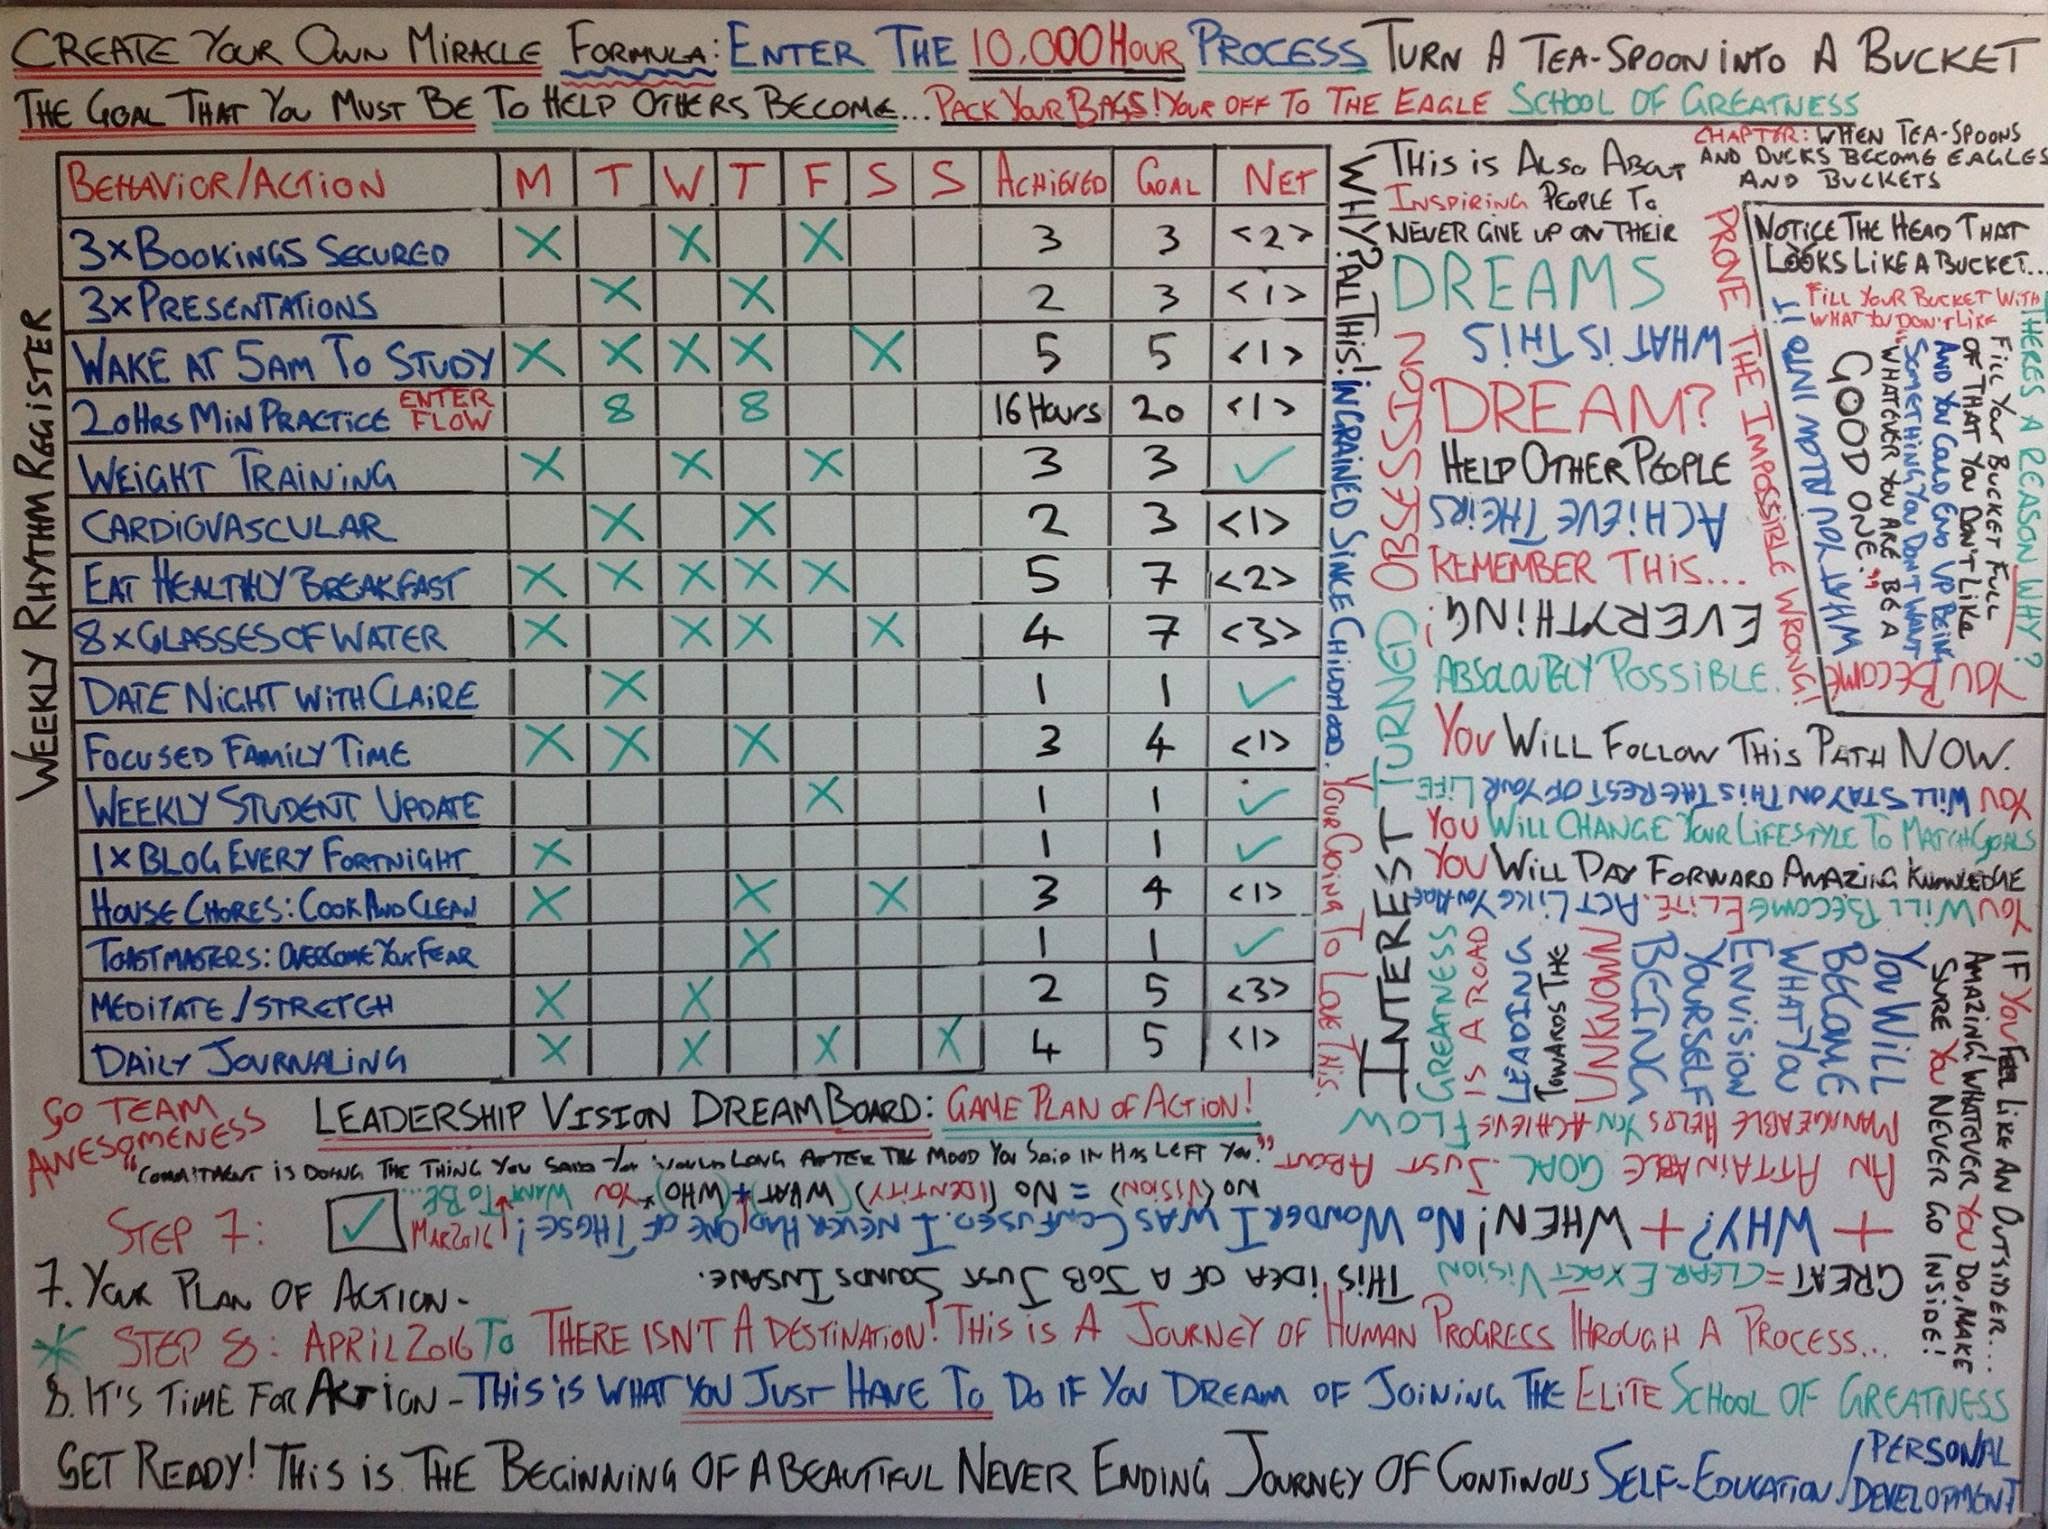 CREATE YOUR OWN MIRACLE FORMULA: ENTER THE 10,000 HOUR PROCESS TURN A TEA-SPOON INTO A BUCKET
THE GOAL THAT YOU MUST BE TO HELP OTHERS BECOME... PACK YOUR BAGS! YOUR OFF TO THE EAGLE SCHOOL OF GREATNESS
CHAPTER: WHEN TEA-SPOONS
AND DUCKS BECOME EAGLES
AND BUCKETS
WEEKLY RHYTHM REGISTER
BEHAVIOR/ACTION M T W T F S S ACHIEVED GOAL NET
3x BOOKINGS SECURED X X X 3 3 <2>
3x PRESENTATIONS X X 2 3 <1>
WAKE AT 5AM TO STUDY X X X X X 5 5 <1>
20HRS MIN PRACTICE ENTER FLOW 8 8 16 HOURS 20 <1>
WEIGHT TRAINING X X X 3 3 ✓
CARDIOVASCULAR X X 2 3 <1>
EAT HEALTHLY BREAKFAST X X X X X 5 7 <2>
8x GLASSES OF WATER X X X X 4 7 <3>
DATE NIGHT WITH CLAIRE X 1 1 ✓
FOCUSED FAMILY TIME X X X 3 4 <1>
WEEKLY STUDENT UPDATE X 1 1 ✓
1x BLOG EVERY FORTNIGHT X 1 1 ✓
HOUSE CHORES: COOK AND CLEAN X X X 3 4 <1>
TOASTMASTERS: OVERCOME YOUR FEAR X 1 1 ✓
MEDITATE/STRETCH X X 2 5 <3>
DAILY JOURNALING X X X X 4 5 <1>
WHY? ALL THIS! INGRAINED SINCE CHILDHOOD. YOUR GOING TO LOVE THIS.
INTEREST TURNED OBSESSION
THIS IS ALSO ABOUT
INSPIRING PEOPLE TO
NEVER GIVE UP ON THEIR
DREAMS
WHAT IS THIS
DREAM?
HELP OTHER PEOPLE
ACHIEVE THEIRS
REMEMBER THIS...
EVERYTHING!
ABSOLUTELY POSSIBLE.
PROVE THE IMPOSSIBLE WRONG!
NOTICE THE HEAD THAT
LOOKS LIKE A BUCKET...
FILL YOUR BUCKET WITH
WHAT YOU DON'T LIKE
THERES A REASON WHY?
FILL YOUR BUCKET FULL
OF THAT YOU DON'T LIKE
AND YOU COULD END UP BEING
SOMETHING YOU DON'T WANT
"WHATEVER YOU ARE BE A
GOOD ONE."
YOU BECOME
WHAT YOU ALLOW INTO IT
YOU WILL FOLLOW THIS PATH NOW.
YOU WILL STAY ON THIS THE REST OF YOUR LIFE
YOU WILL CHANGE YOUR LIFESTYLE TO MATCH GOALS
YOU WILL DAY FORWARD AMAZING KNOWLEDGE
YOU WILL BECOME ELITE. ACT LIKE YOU ARE
GREATNESS
IS A ROAD
LEADING
TOWARDS THE
UNKNOWN
YOU WILL
BECOME
WHAT YOU
ENVISION
YOURSELF
BEING
IF YOU FEEL LIKE AN OUTSIDER...
AMAZING! WHATEVER YOU DO, MAKE
SURE YOU NEVER GO INSIDE!
GO TEAM
AWESOMENESS
LEADERSHIP VISION DREAM BOARD: GAME PLAN OF ACTION!
"COMMITMENT IS DOING THE THING YOU SAID YOU WOULD LONG AFTER THE MOOD YOU SAID IN HAS LEFT YOU."
STEP 7: ✓ MAR 2016
GREAT = CLEAR EXACT VISION THIS IDEA OF A JOB JUST SOUNDS INSANE.
+ WHY? + WHEN! NO WONDER I WAS CONFUSED. I NEVER HAD ONE OF THESE!
NO (VISION) = NO (IDENTITY) (WHAT) + (WHO) * YOU WANT TO BE...
AN ATTAINABLE GOAL JUST ABOUT
MANAGEABLE HELPS YOU ACHIEVE FLOW
7. YOUR PLAN OF ACTION -
* STEP 8: APRIL 2016 TO THERE ISN'T A DESTINATION! THIS IS A JOURNEY OF HUMAN PROGRESS THROUGH A PROCESS...
8. IT'S TIME FOR ACTION - THIS IS WHAT YOU JUST HAVE TO DO IF YOU DREAM OF JOINING THE ELITE SCHOOL OF GREATNESS
GET READY! THIS IS THE BEGINNING OF A BEAUTIFUL NEVER ENDING JOURNEY OF CONTINOUS SELF-EDUCATION/PERSONAL DEVELOPMENT